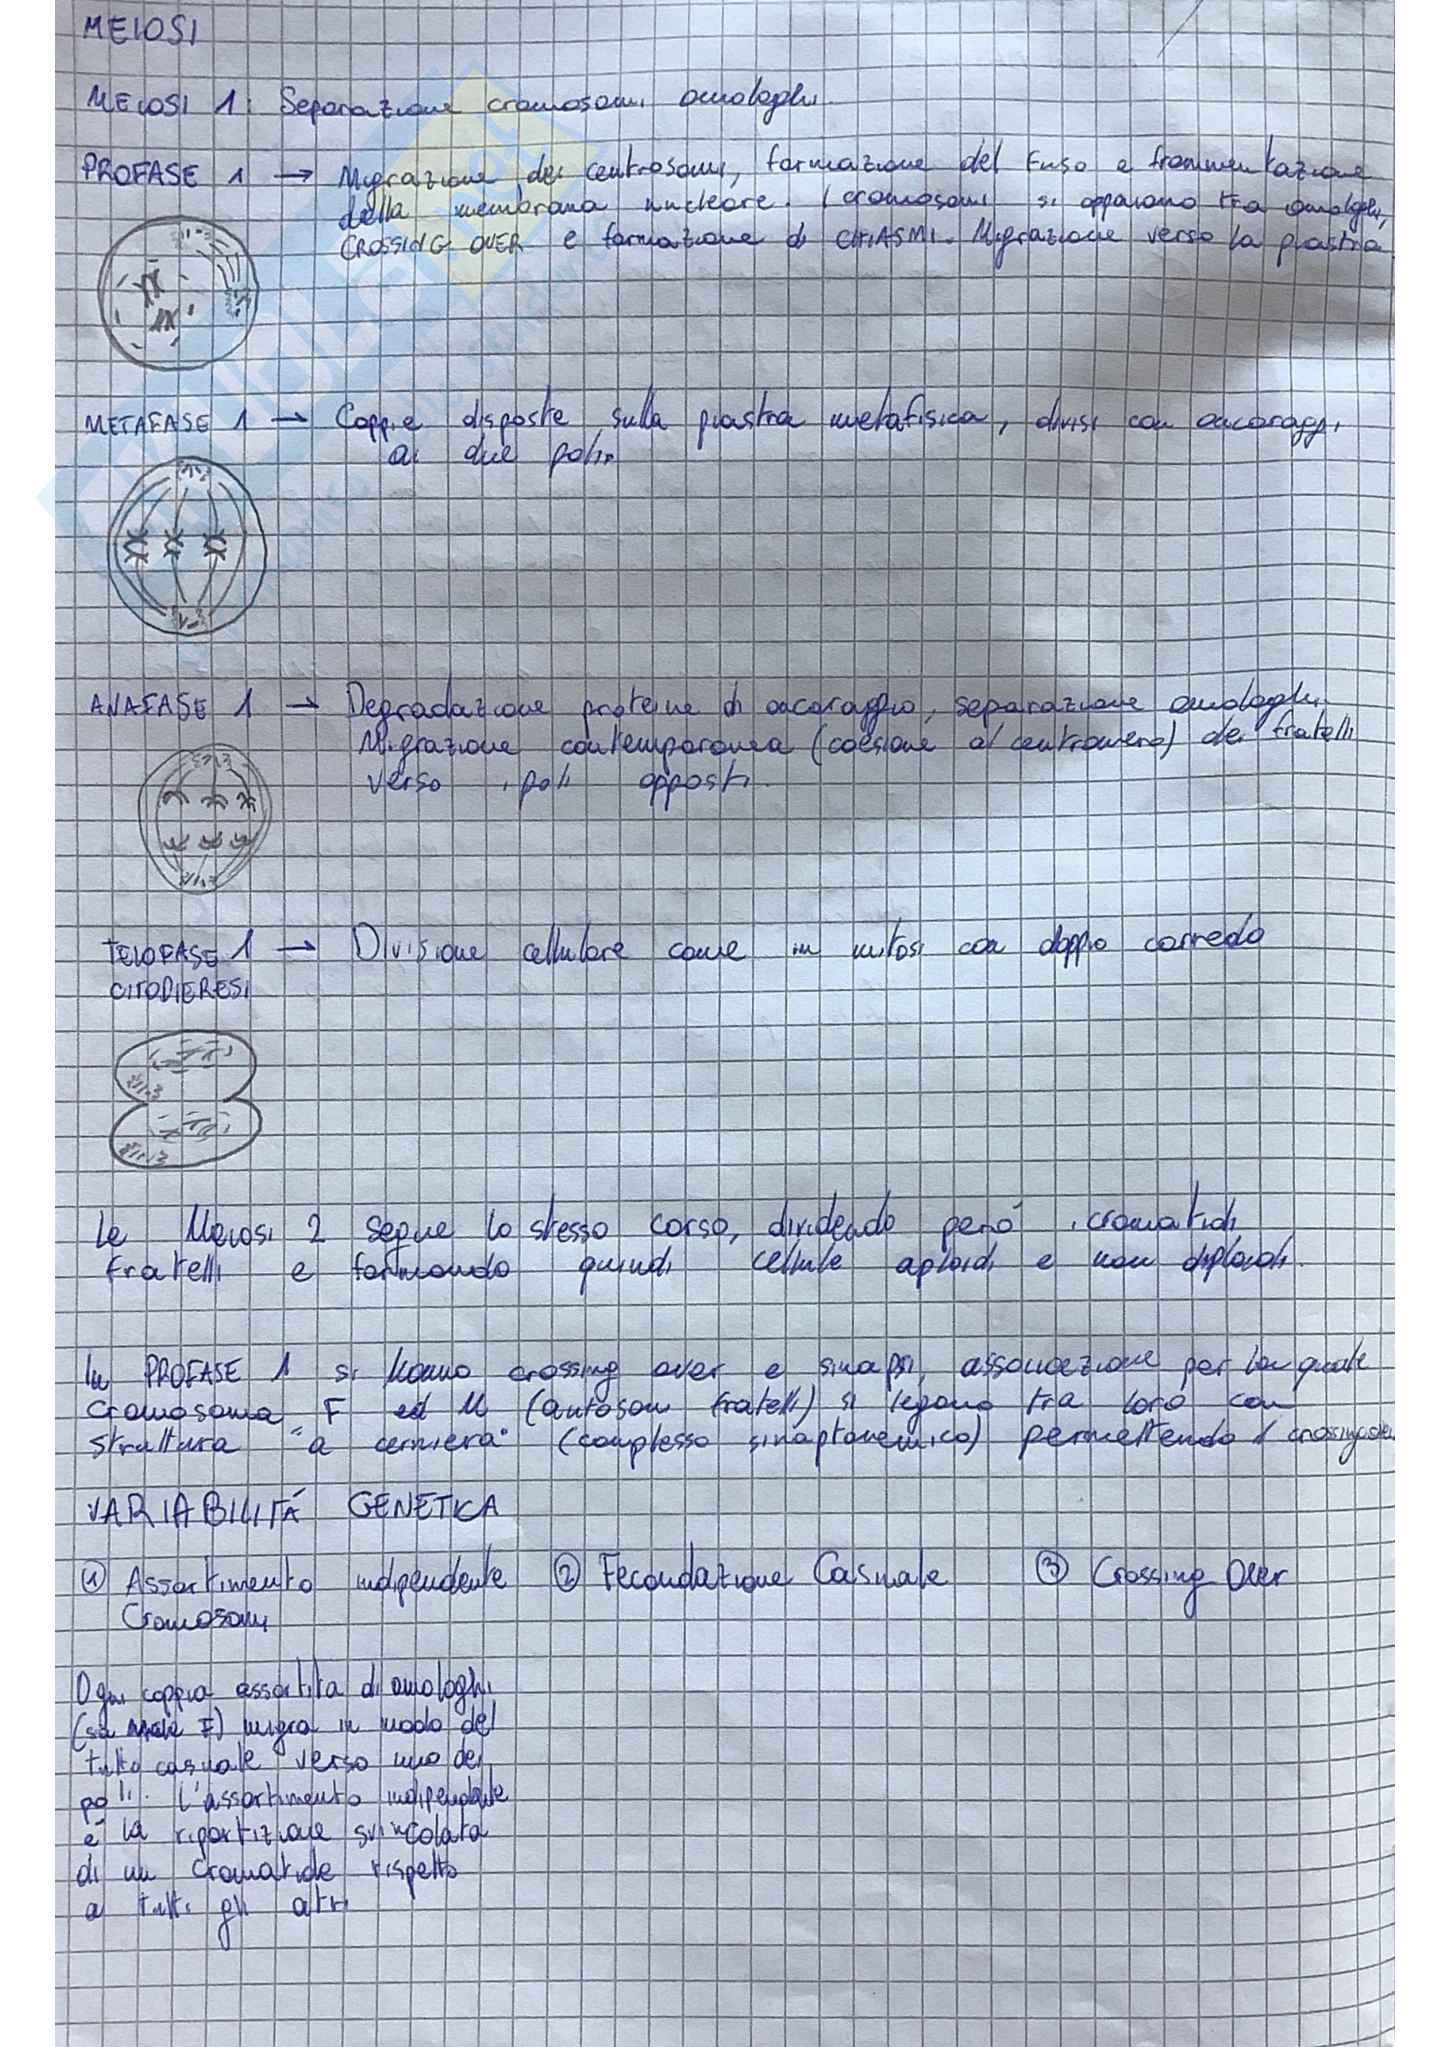 MEIOSI
MEIOSI 1: Separazione cromosomi omologhi.
PROFASE 1 → Migrazione dei centrosomi, formazione del Fuso e frammentazione
della membrana nucleare. I cromosomi si appaiono tra omologhi,
CROSSING OVER e formazione di CHIASMI. Migrazione verso la piastra
METAFASE 1 → Coppie disposte sulla piastra metafisica, divisi con ancoraggi
ai due poli.
ANAFASE 1 → Degradazione proteine di ancoraggio, separazione omologhi.
Migrazione contemporanea (coesione al centromero) dei fratelli
verso i poli opposti.
TELOFASE 1 → Divisione cellulare come in mitosi con doppio corredo
CITODIERESI
Le Meiosi 2 segue lo stesso corso, dividendo però i cromatidi
fratelli e formando quindi cellule aploidi e non diploidi.
In PROFASE 1 si hanno crossing over e sinapsi, associazione per la quale
cromosoma F ed M (autosomi fratelli) si legano tra loro con
struttura "a cerniera" (complesso sinaptonemico) permettendo il crossing over
VARIABILITÁ GENETICA
① Assortimento indipendente ② Fecondazione Casuale ③ Crossing Over
Cromosomi
Ogni coppia assortita di omologhi
(sia F) migra in modo del
tutto casuale verso uno dei
poli. L'assortimento indipendente
é la ripartizione svincolata
di un Cromatide rispetto
a tutti gli altri